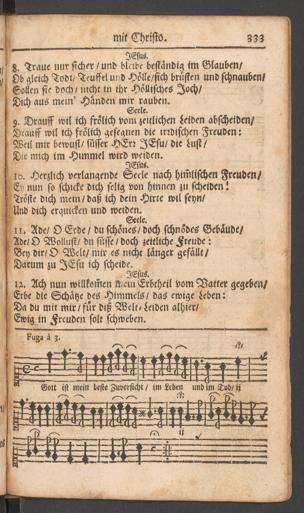 mit Christo. 333
JEsus.
8. Traue nur sicher/ und bleibe beständig im Glauben/
Ob gleich Todt/ Teuffel und Hölle/ sich brüsten und schnauben/
Sollen sie doch/ nicht in ihr Höllisches Joch/
Dich aus mein' Händen mir rauben.
Seele.
9. Drauff wil ich frölich vom zeitlichen Leiden abscheiden/
Drauff wil ich frölich gesegnen die irrdischen Freuden:
Weil mir bewust/ süsser HErr JEsu/ die Lust/
Die mich im Himmel wird weiden.
JEsus.
10. Hertzlich verlangende Seele nach him̃lischen Freuden/
Ey nun so schicke dich selig von hinnen zu scheiden!
Tröste dich mein/ daß ich dein Hirte wil seyn/
Und dich erquicken und weiden.
Seele.
11. Ade/ O Erde/ du schönes/ doch schnödes Gebäude/
Ade/ O Wollust/ du süsse/ doch zeitliche Freude:
Bey dir/ O Welt/ mir es nicht länger gefällt/
Darum zu JEsu ich scheide.
JEsus.
12. Ach nun willkommen mein Erbtheil vom Vatter gegeben/
Erbe die Schätze des Himmels/ das ewige Leben:
Da du mit mir/ für diß Welt-Leiden allhier/
Ewig in Freuden solt schweben.
Fuga á 3.
Gott ist mein beste Zuversicht/ im Leben und im Tod/ ij